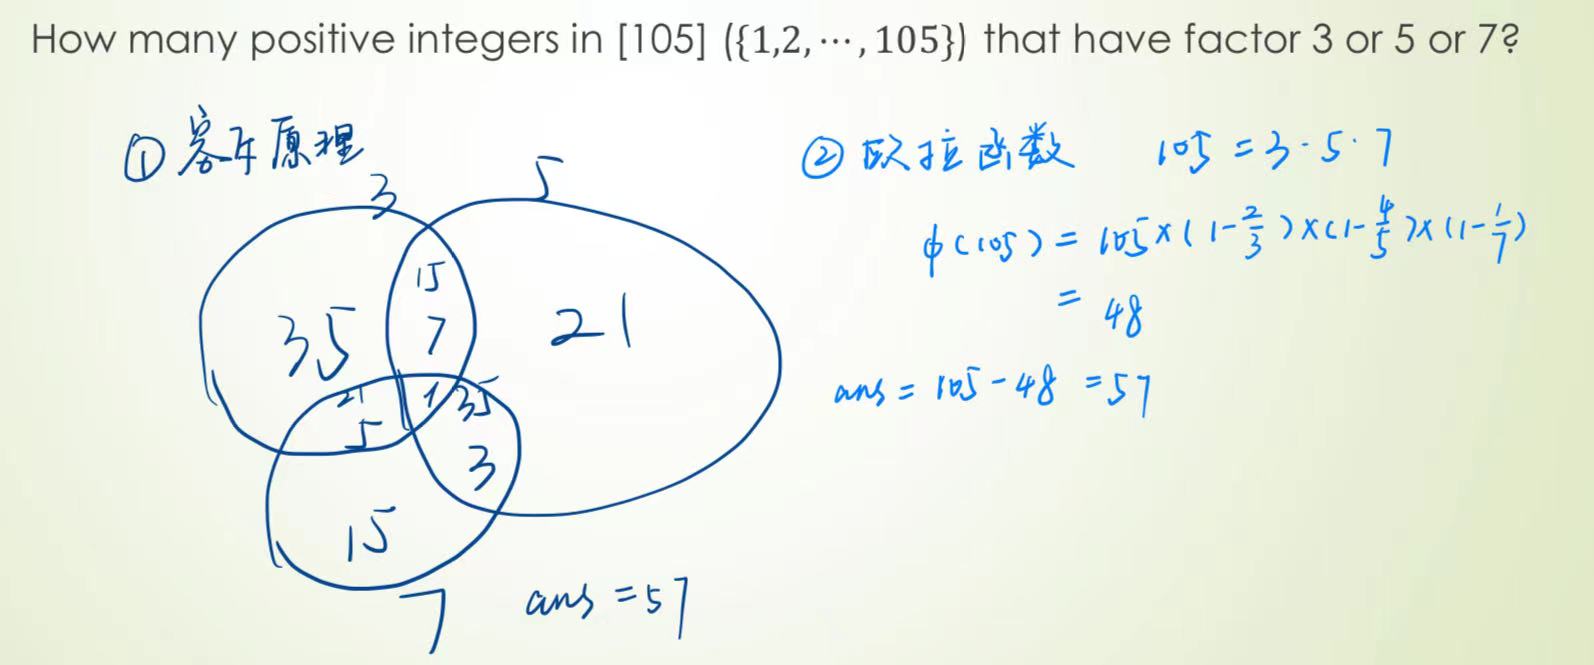 How many positive integers in [105] ({1,2,⋯,105}) that have factor 3 or 5 or 7?
① 容斥原理
3
5
15
7
35
21
21
5
1
35
3
15
7
ans = 57
② 欧拉函数 105 = 3·5·7
φ(105) = 105×(1-2/3)×(1-4/5)×(1-1/7)
= 48
ans = 105-48 = 57